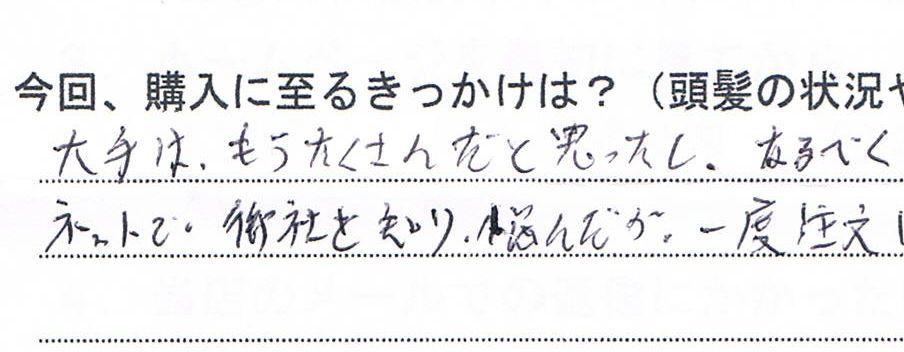 今回、購入に至るきっかけは？（頭髪の状況や
大手は、もうたくさんだと思ったし、なるべく
ネットで、御社を知り、悩んだが、一度注文し